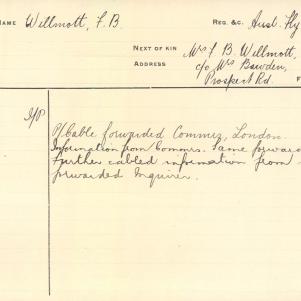 NAME Willmott, F. B. REG. &C. Aust Fly
NEXT OF KIN Mrs F. B. Willmott,
ADDRESS c/o Mrs Bawden,
Prospect Rd. F
I/P
O/Cable forwarded Commrs, London.
Information from Commrs. Same forward
Further cabled information from
forwarded Inquirer.